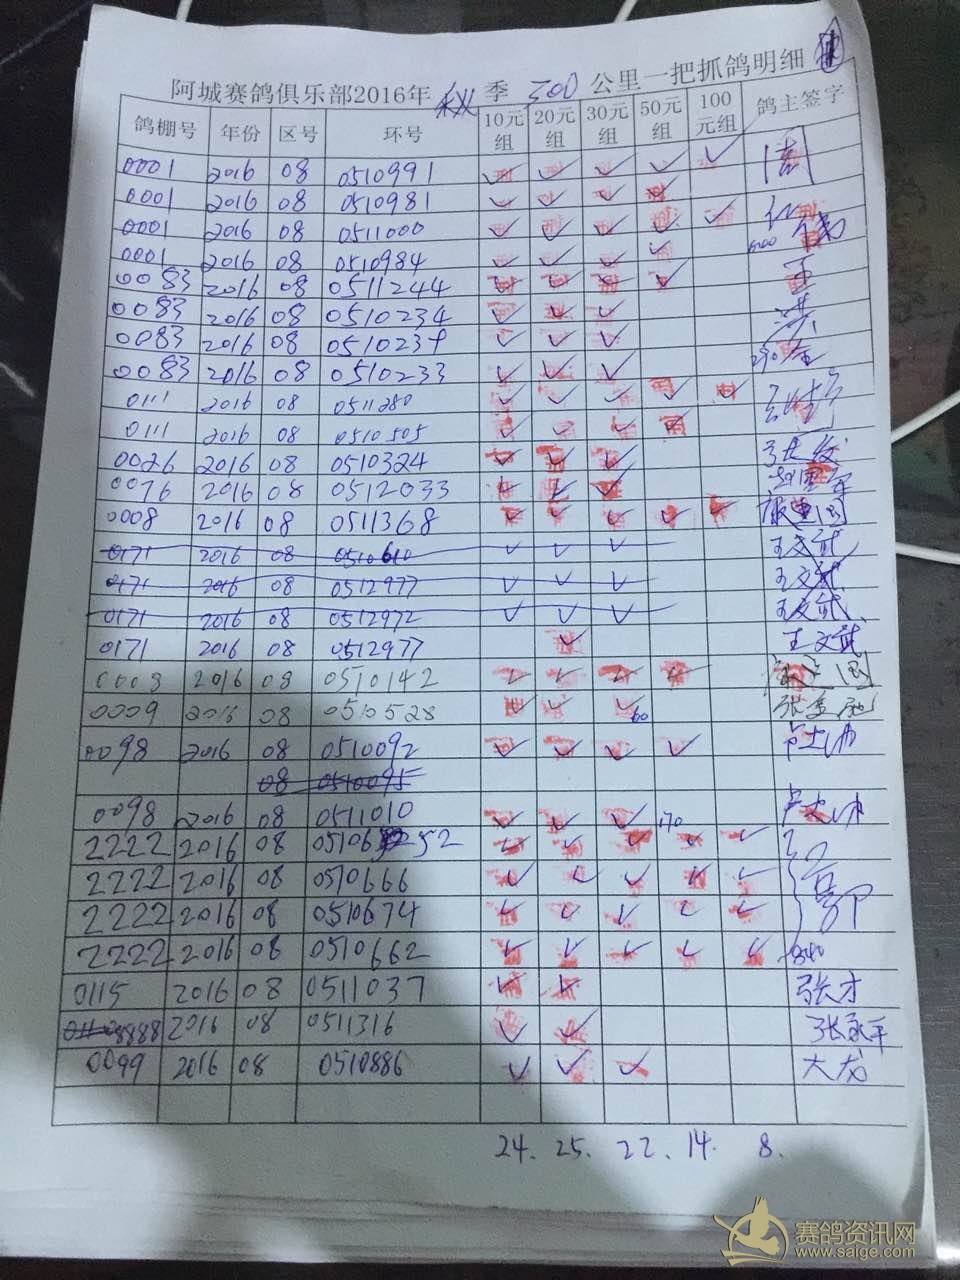 阿城赛鸽俱乐部2016年 秋 季 300 公里一把抓鸽明细
鸽棚号 年份 区号 环号 10元组 20元组 30元组 50元组 100元组 鸽主签字
0001 2016 08 0510991 ✓ ✓ ✓ ✓ ✓
0001 2016 08 0510981 ✓ ✓ ✓ ✓
0001 2016 08 0511000 ✓ ✓ ✓ ✓ ✓
0001 2016 08 0510984 ✓ ✓ ✓ ✓
0083 2016 08 0511244 ✓ ✓ ✓ ✓ 王
0083 2016 08 0510234 ✓ ✓ ✓ 洪
0083 2016 08 051023 ✓ ✓ ✓
0083 2016 08 0510233 ✓ ✓ ✓
0111 2016 08 0511280 ✓ ✓ ✓ ✓ ✓
0111 2016 08 0510505 ✓ ✓ ✓ ✓
0026 2016 08 0510324 ✓ ✓ ✓
0076 2016 08 0512033 ✓ ✓ ✓
0008 2016 08 0511368 ✓ ✓ ✓ ✓ ✓
0171 2016 08 0510610 ✓ ✓ ✓ 王文武
0171 2016 08 0512977 ✓ ✓ ✓ 王文武
0171 2016 08 0512972 ✓ ✓ ✓ 王文武
0171 2016 08 0512977 ✓ 王文武
2016 08 0510142 ✓ ✓ ✓ ✓
0009 2016 08 0510528 ✓ ✓ ✓ 60 张
0098 2016 08 0510092 ✓ ✓ ✓ ✓
08 0510095
0098 2016 08 0511010 ✓ ✓ ✓ 170
2222 2016 08 0510652 ✓ ✓ ✓ ✓ ✓
2222 2016 08 0510666 ✓ ✓ ✓ ✓ ✓
2222 2016 08 0510674 ✓ ✓ ✓ ✓ ✓ 郭
2222 2016 08 0510662 ✓ ✓ ✓ ✓ ✓ 840
0115 2016 08 0511037 ✓ ✓ 张才
8888 2016 08 0511316 ✓ ✓ 张永平
0099 2016 08 0510886 ✓ ✓ ✓ 大龙
24. 25. 22. 14. 8.
赛鸽资讯网
www.saige.com